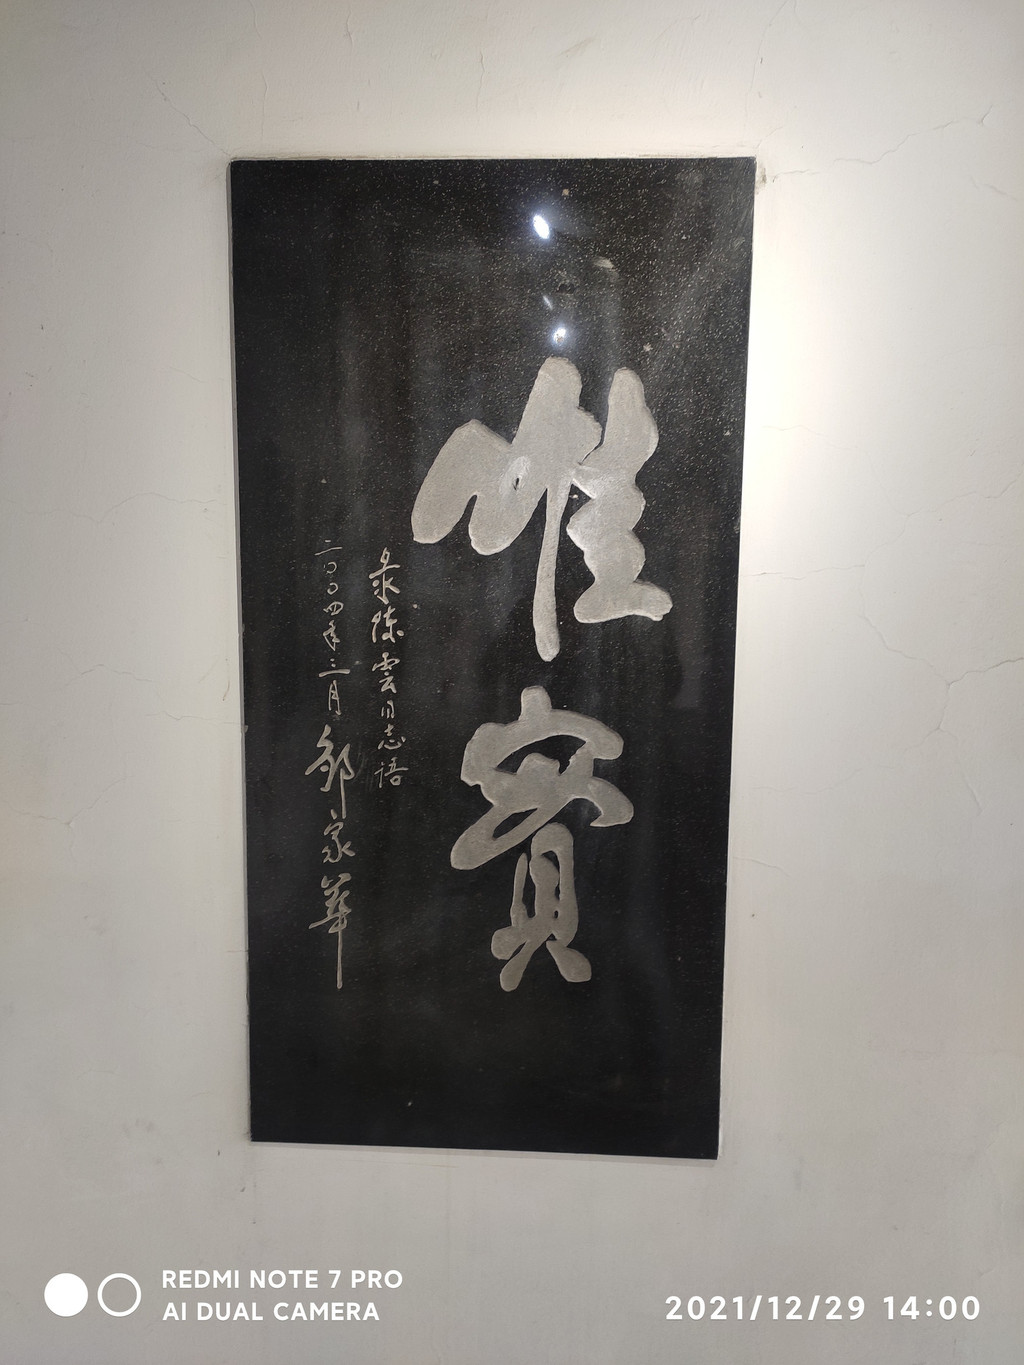 唯實
录陈雲同志语
二〇〇四年三月 邹家華
REDMI NOTE 7 PRO
AI DUAL CAMERA
2021/12/29 14:00